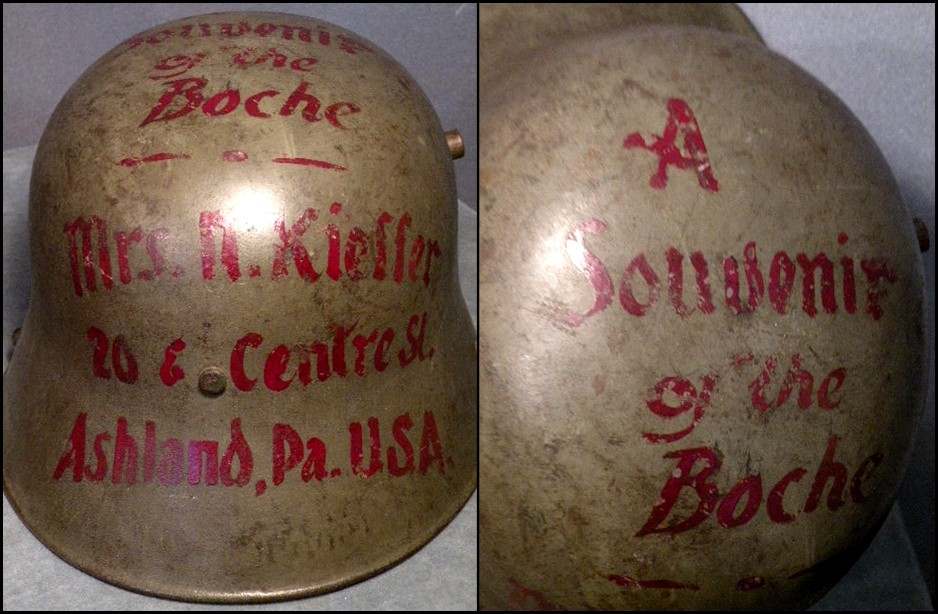 Souvenir
of the
Boche
Mrs. N. Kieffer
20 E Centre St.
Ashland, Pa. USA.
A
Souvenir
of the
Boche